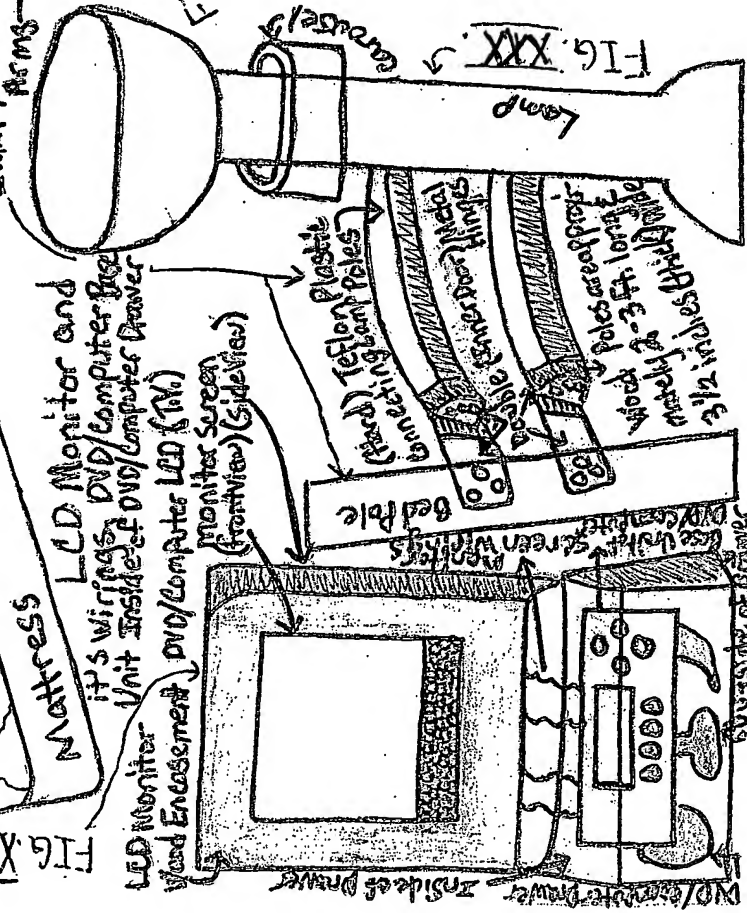 Arms
Carousel
FIG. XXX.
Lamp
Mattress
LCD Monitor and
it's Wirings, DVD/Computer Base
Unit Inside of DVD/Computer Drawer
FIG. X
LCD Monitor
Wood Encasement
DVD/Computer LCD (T.V.)
Monitor Screen
(frontView) (sideView)
(Hard) Teflon Plastic
Connecting Lamp Poles
Double (Inner Door) Metal
Hinges
Wood Poles are approxi-
mately 2-3 ft. long &
3 1/2 inches (thick) wide
Bed Pole
Monitors
Screen Wirings
Base Unit of
DVD/Computer
Inside of Drawer
DVD/Computer Drawer